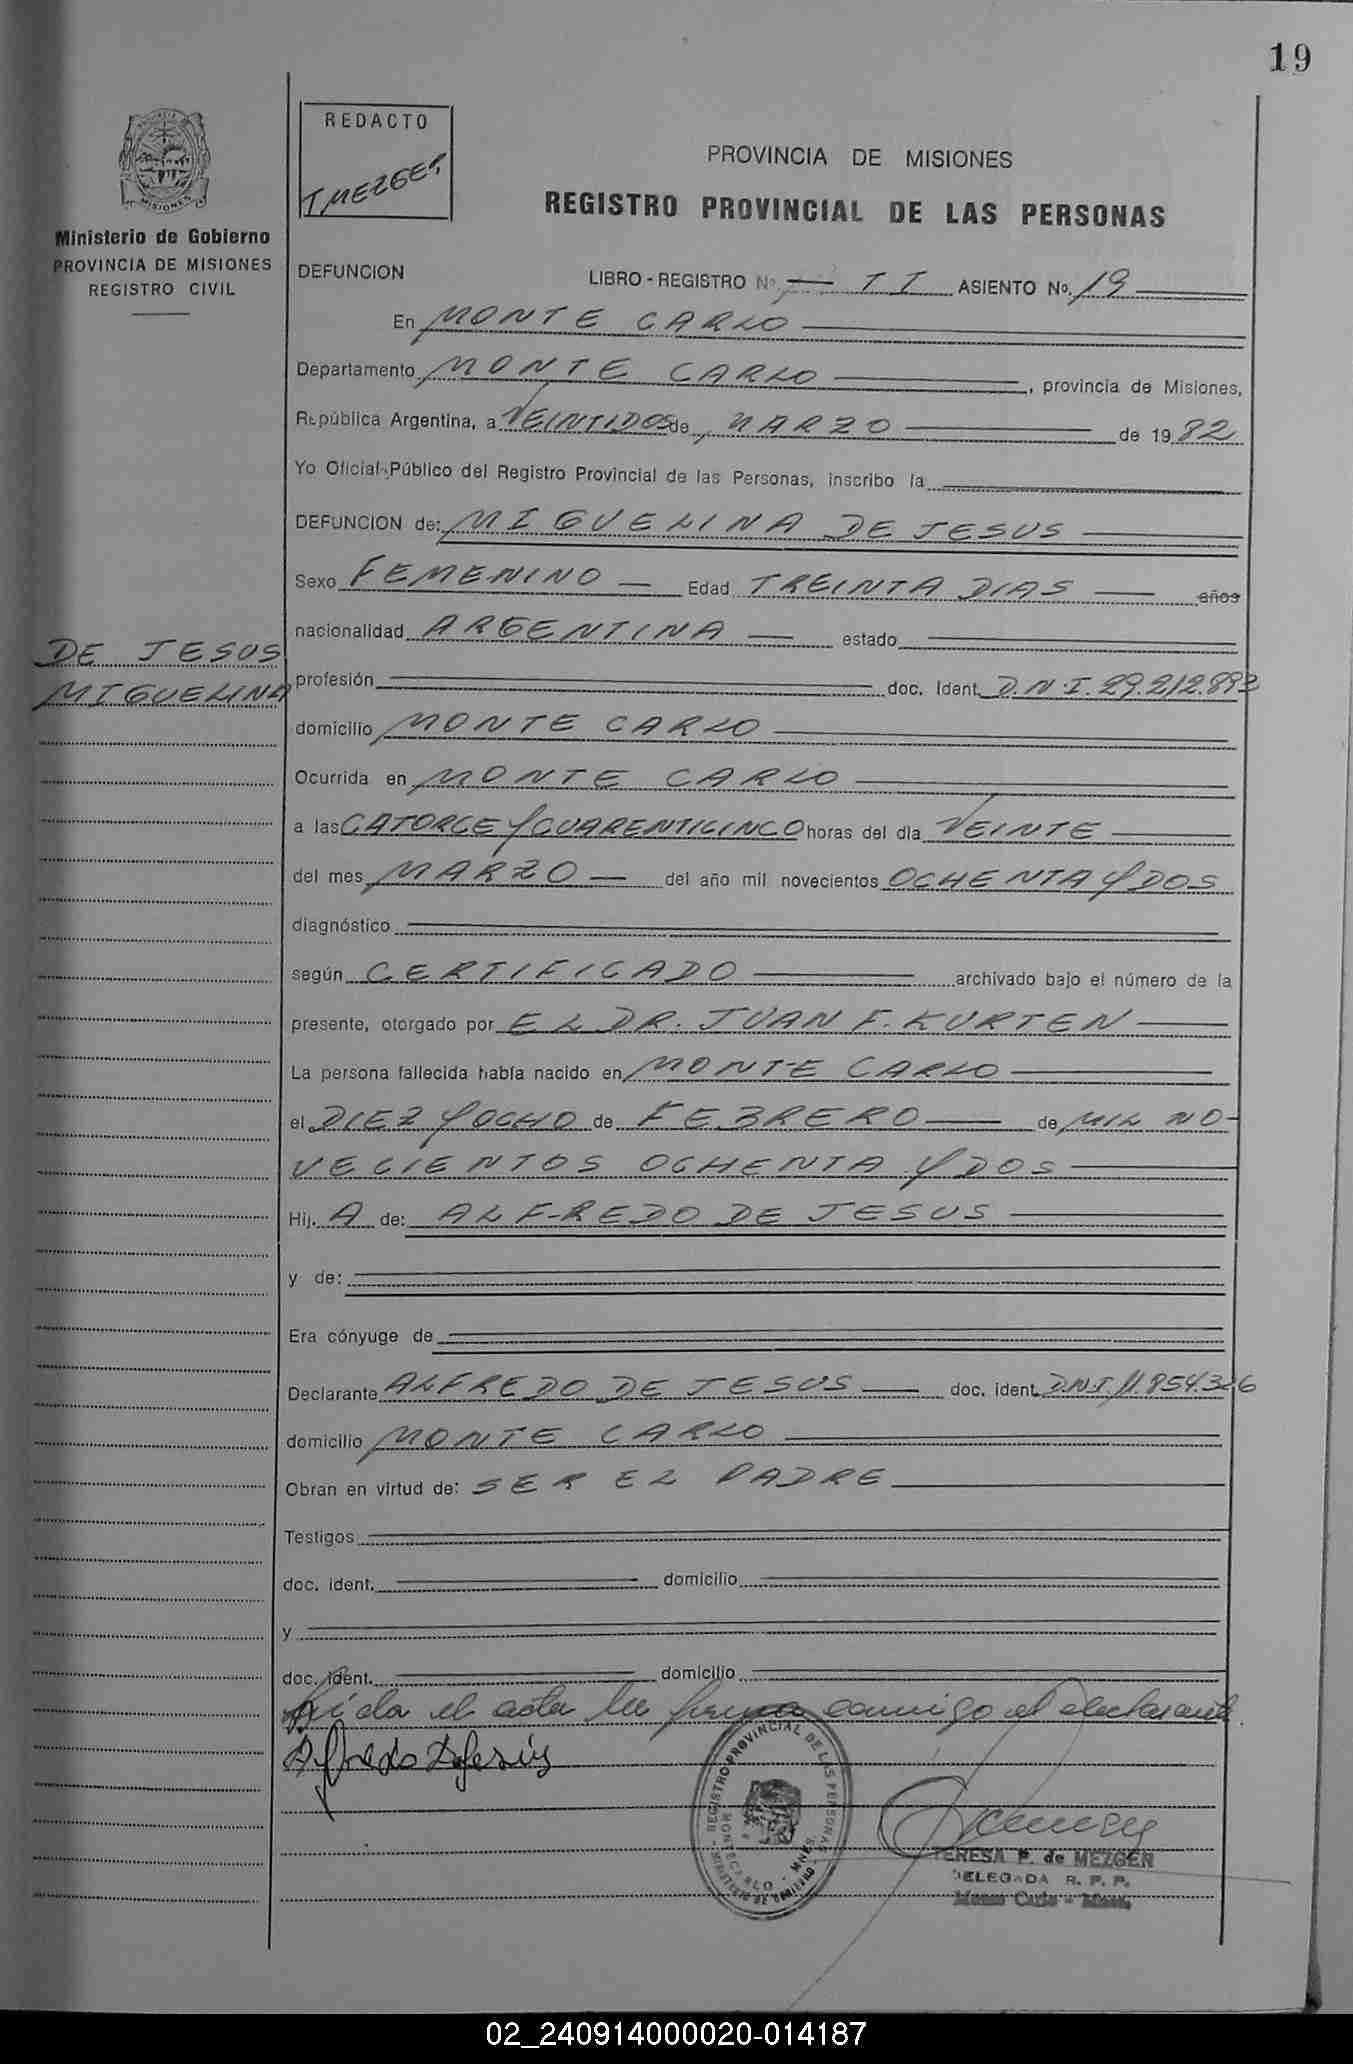 19
REDACTO
T MEZGER
PROVINCIA DE MISIONES
REGISTRO PROVINCIAL DE LAS PERSONAS
MISIONES
Ministerio de Gobierno
PROVINCIA DE MISIONES
REGISTRO CIVIL
DEFUNCION LIBRO - REGISTRO Nº. — II ASIENTO Nº. 19
En MONTE CARLO
Departamento MONTE CARLO , provincia de Misiones,
República Argentina, a VEINTIDOS de MARZO de 1982
Yo Oficial Público del Registro Provincial de las Personas, inscribo la
DEFUNCION de: MIGUELINA DE JESUS
Sexo FEMENINO — Edad TREINTA DIAS — años
nacionalidad ARGENTINA — estado
DE JESUS
MIGUELINA
profesión doc. Ident. D.N.I. 29.212.893
domicilio MONTE CARLO
Ocurrida en MONTE CARLO
a las CATORCE Y CUARENTICINCO horas del día VEINTE
del mes MARZO — del año mil novecientos OCHENTA Y DOS
diagnóstico
según CERTIFICADO archivado bajo el número de la
presente, otorgado por EL DR. JUAN F. KURTEN
La persona fallecida había nacido en MONTE CARLO
el DIEZ Y OCHO de FEBRERO de MIL NO-
VECIENTOS OCHENTA Y DOS
Hij. A de: ALFREDO DE JESUS
y de:
Era cónyuge de
Declarante ALFREDO DE JESUS — doc. ident. D.N.I. 11.854.326
domicilio MONTE CARLO
Obran en virtud de: SER EL PADRE
Testigos
doc. ident. domicilio
y
doc. ident. domicilio
Leida el acta la firma conmigo el declarante.
REGISTRO PROVINCIAL DE LAS PERSONAS
MONTECARLO - MNES.
TERESA P. de MEZGER
DELEGADA R. P. P.
Monte Carlo - Mnes.
02_240914000020-014187